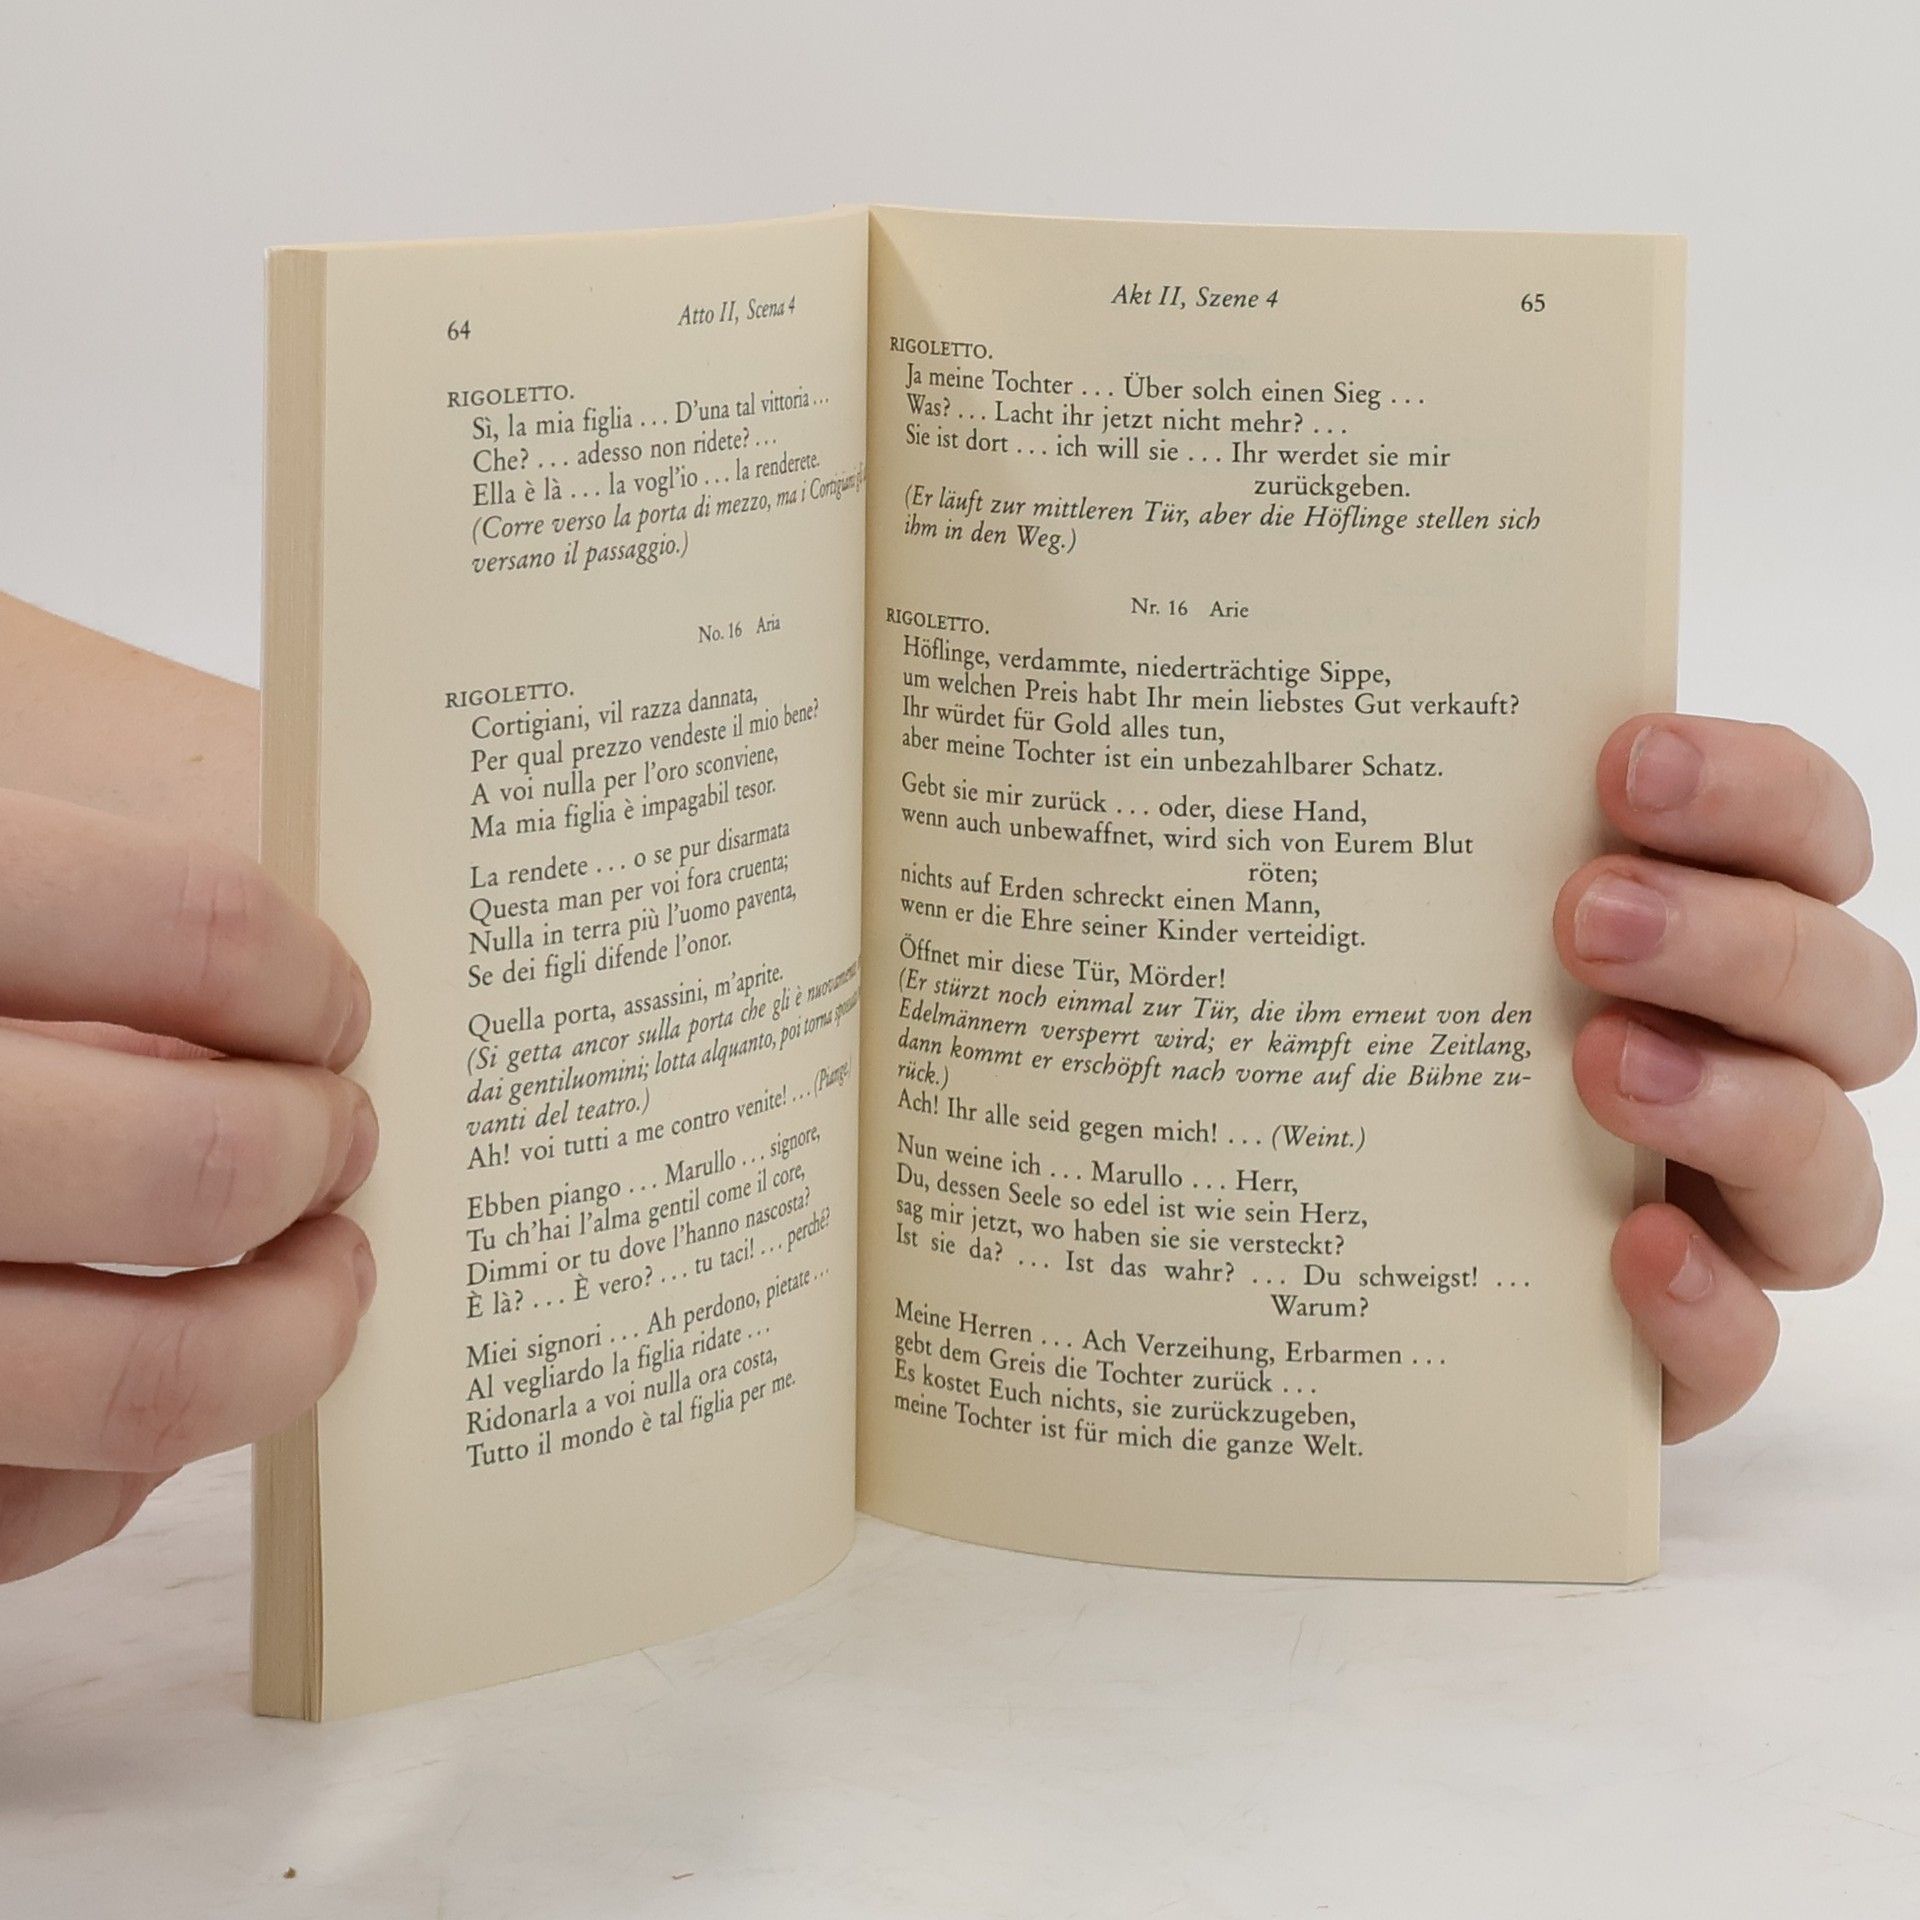 64 Atto II, Scena 4
RIGOLETTO.
Sì, la mia figlia . . . D'una tal vittoria . . .
Che? . . . adesso non ridete? . . .
Ella è là . . . la vogl'io . . . la renderete.
(Corre verso la porta di mezzo, ma i Cortigiani
versano il passaggio.)
No. 16 Aria
RIGOLETTO.
Cortigiani, vil razza dannata,
Per qual prezzo vendeste il mio bene?
A voi nulla per l'oro sconviene,
Ma mia figlia è impagabil tesor.
La rendete . . . o se pur disarmata
Questa man per voi fora cruenta;
Nulla in terra più l'uomo paventa,
Se dei figli difende l'onor.
Quella porta, assassini, m'aprite.
(Si getta ancor sulla porta che gli è nuovamente
dai gentiluomini; lotta alquanto, poi torna spossato
vanti del teatro.)
Ah! voi tutti a me contro venite! . . . (Piange.)
Ebben piango . . . Marullo . . . signore,
Tu ch'hai l'alma gentil come il core,
Dimmi or tu dove l'hanno nascosta?
È là? . . . È vero? . . . tu taci! . . . perché?
Miei signori . . . Ah perdono, pietate . . .
Al vegliardo la figlia ridate . . .
Ridonarla a voi nulla ora costa,
Tutto il mondo è tal figlia per me.
Akt II, Szene 4 65
RIGOLETTO.
Ja meine Tochter . . . Über solch einen Sieg . . .
Was? . . . Lacht ihr jetzt nicht mehr? . . .
Sie ist dort . . . ich will sie . . . Ihr werdet sie mir
zurückgeben.
(Er läuft zur mittleren Tür, aber die Höflinge stellen sich
ihm in den Weg.)
Nr. 16 Arie
RIGOLETTO.
Höflinge, verdammte, niederträchtige Sippe,
um welchen Preis habt Ihr mein liebstes Gut verkauft?
Ihr würdet für Gold alles tun,
aber meine Tochter ist ein unbezahlbarer Schatz.
Gebt sie mir zurück . . . oder, diese Hand,
wenn auch unbewaffnet, wird sich von Eurem Blut
röten;
nichts auf Erden schreckt einen Mann,
wenn er die Ehre seiner Kinder verteidigt.
Öffnet mir diese Tür, Mörder!
(Er stürzt noch einmal zur Tür, die ihm erneut von den
Edelmännern versperrt wird; er kämpft eine Zeitlang,
dann kommt er erschöpft nach vorne auf die Bühne zu-
rück.)
Ach! Ihr alle seid gegen mich! . . . (Weint.)
Nun weine ich . . . Marullo . . . Herr,
Du, dessen Seele so edel ist wie sein Herz,
sag mir jetzt, wo haben sie sie versteckt?
Ist sie da? . . . Ist das wahr? . . . Du schweigst! . . .
Warum?
Meine Herren . . . Ach Verzeihung, Erbarmen . . .
gebt dem Greis die Tochter zurück . . .
Es kostet Euch nichts, sie zurückzugeben,
meine Tochter ist für mich die ganze Welt.